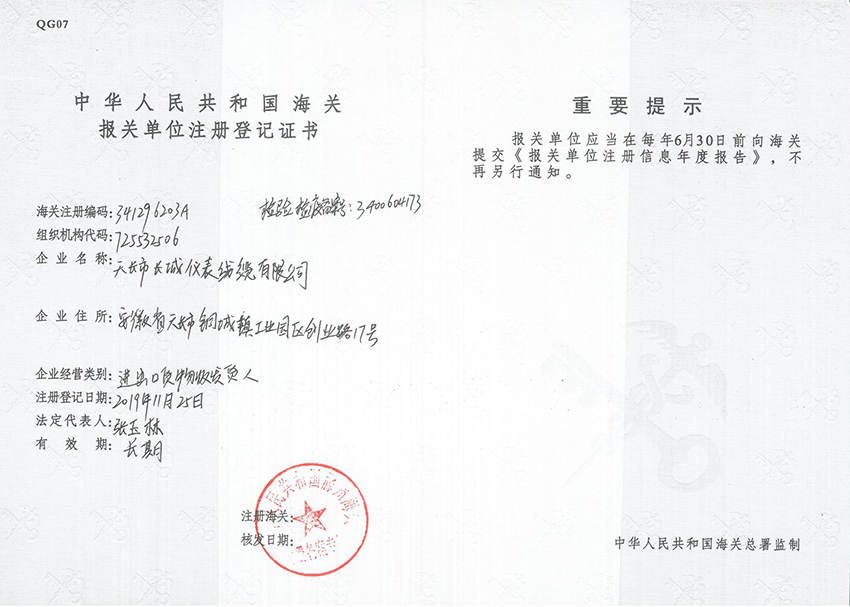 QG07
中华人民共和国海关
报关单位注册登记证书
海关注册编码:341296203A 检验检疫备案号:3400604173
组织机构代码:725532506
企业名称:天长市长城仪表线缆有限公司
企业住所:安徽省天长市铜城镇工业园区创业路17号
企业经营类别:进出口货物收发货人
注册登记日期:2019年11月25日
法定代表人:张玉林
有效期:长期
注册海关:
核发日期:
重要提示
报关单位应当在每年6月30日前向海关
提交《报关单位注册信息年度报告》,不
再另行通知。
中华人民共和国海关总署监制